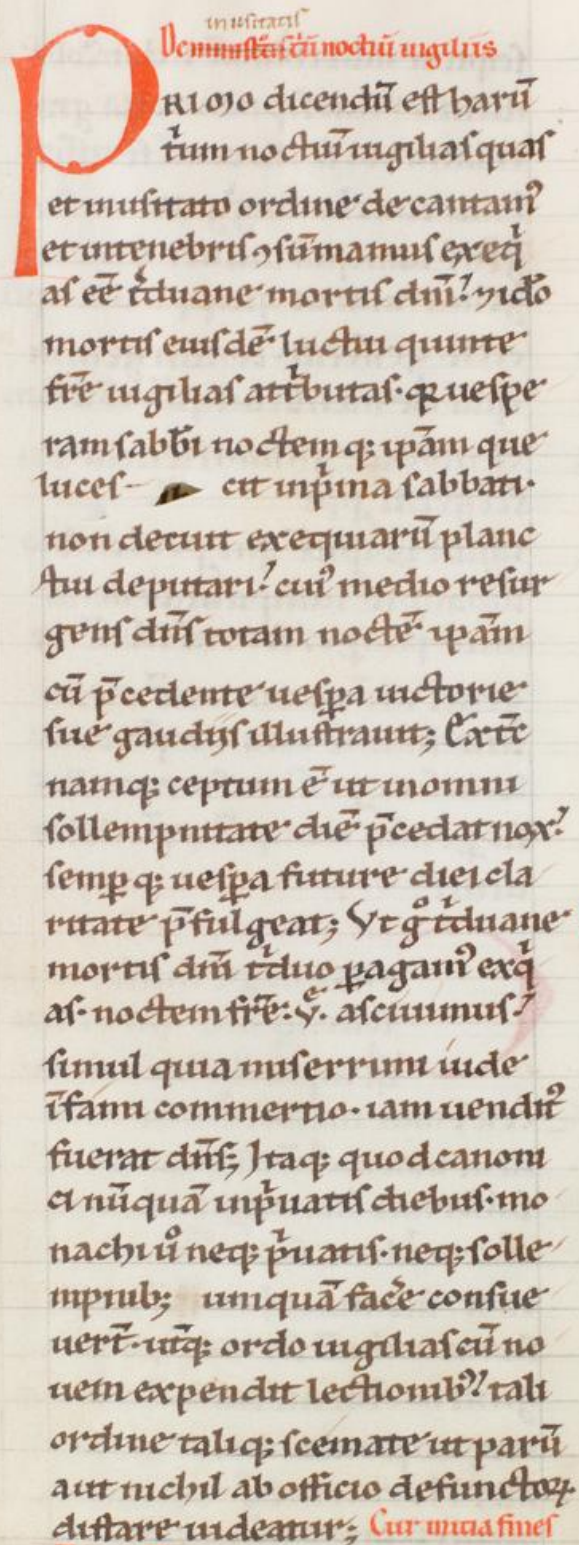 inusitatis
De ministris triū noctiū uigiliis
PRIMO dicendū est harū
t̾ium noctiū uigilias quas
et inusitato ordine decantamꝰ
et in tenebris ꝯsūmamus exeq̾
as eē t̾duane mortis dn̄i. ⁊ idō
mortis eiusdē luctui quinte
fr̄e uigilias att̾butas. qꝛ uespe
ram sabb̄i noctemq; ip̄am que
luces- cit in p̾ma sabbati.
non decuit exequiarū planc
tui deputari. cuiꝰ medio resur
gens dn̄s totam noctē ip̄am
cū p̄cedente uesꝑa uictorie
sue gaudiis illustrauit; Ex t̄c
namq; ceptum ē ut in omni
sollempnitate diē p̄cedat nox.
semꝑq; uesꝑa future diei cla
ritate p̄fulgeat; Vt gͦ t̾duane
mortis dn̄i t̾duo ꝑagamꝰ exq̾
as. noctem fr̄e .v. asciuimus.
simul quia miserrimi iude
īfami commertio. iam uenditꝰ
fuerat dn̄s; Itaq; quod canoni
ci nūquā in p̾uatis diebus. mo
nachi uͦ neq; p̾uatis. neq; solle
mpnib; umquā fac̄e consue
uert̄. ut̾q; ordo uigilias cū no
uem expendit lectionibꝰ. tali
ordine taliq; scemate ut parū
aut nichil ab officio defunctoꝝ
distare uideatur; Cur initia fines